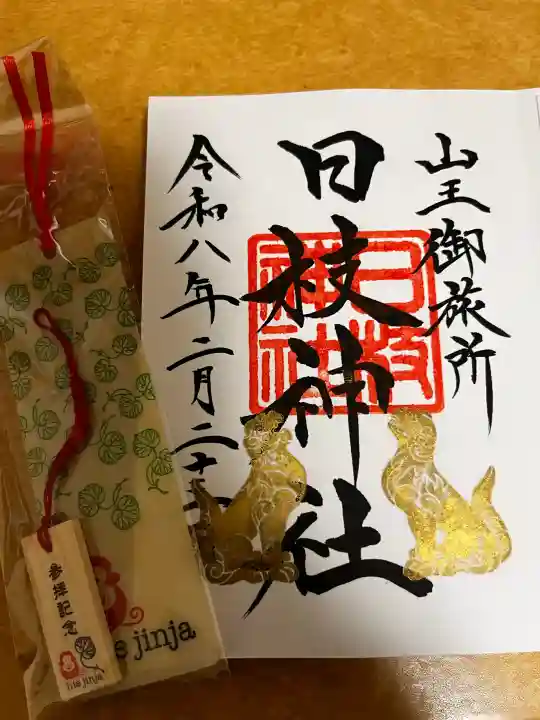 山王御旅所
日枝神社
日枝
神社
令和八年二月二十
参拝記念
hie jinja
hie jinja